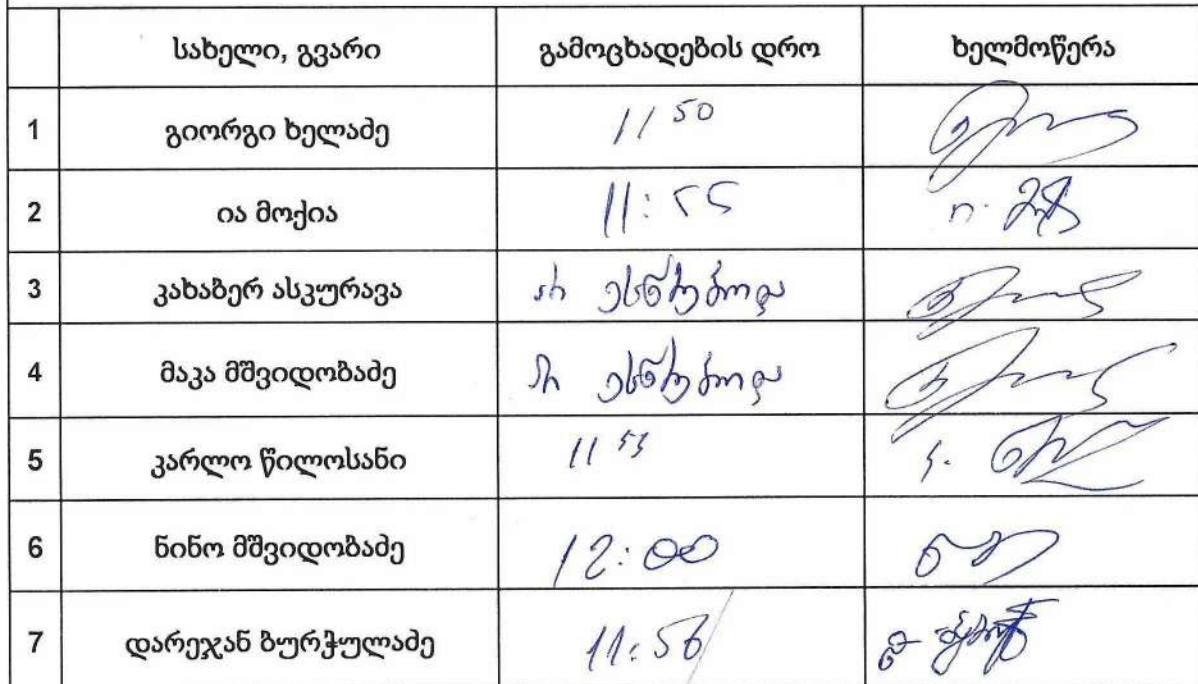 სახელი, გვარი გამოცხადების დრო ხელმოწერა
1 გიორგი ხელაძე 11 50
2 ია მოქია 11:55
3 კახაბერ ასკურავა არ ესწრებოდა
4 მაკა მშვიდობაძე არ ესწრებოდა
5 კარლო წილოსანი 11 53
6 ნინო მშვიდობაძე 12:00
7 დარეჯან ბურჭულაძე 11:56